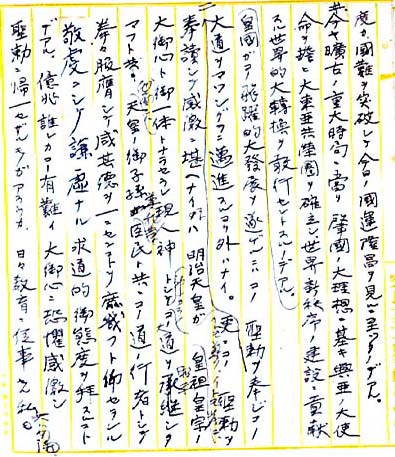 度カ國難ヲ突破シテ今日ノ國運隆昌ヲ見ルニ至ツタノデアル。
昔今曠古ノ重大時局ニ當リ肇國ノ大理想ニ基キ興亜ノ大使
命ヲ擔ヒ大東亜共榮圏ヲ確立シ世界新秩序ノ建設ニ貢献
スル世界的大轉換ヲ敢行セントスルノデアル。
皇國ガコノ飛躍的大發展ヲ遂ゲンニハコノ聖勅ヲ奉シコノ
大道ヲマツシグラニ邁進スルヨリ外ハナイ。更ニコノ聖勅ヲ
奉讀シテ感激ニ堪ヘナイノハ明治天皇ガ皇祖皇宗ノ
大御心ト御一体トナラセラレ現人神トシテコノ大道ヲ承継シテ
マフト共ニ天皇ノ御子孫臣民ト共ニコノ道ノ行者トシテ
拳々服膺シテ咸其徳ヲ一ニセンコトヲ庶幾フト仰セラレ
敬虔ニシテ謙虚ナル求道的御態度ヲ拝スルコト
デアル。億兆誰レカコノ有難イ大御心ニ恐懼感激シ
聖勅ニ帰一セザルモノガアラウカ。日々教育ニ従事スル私